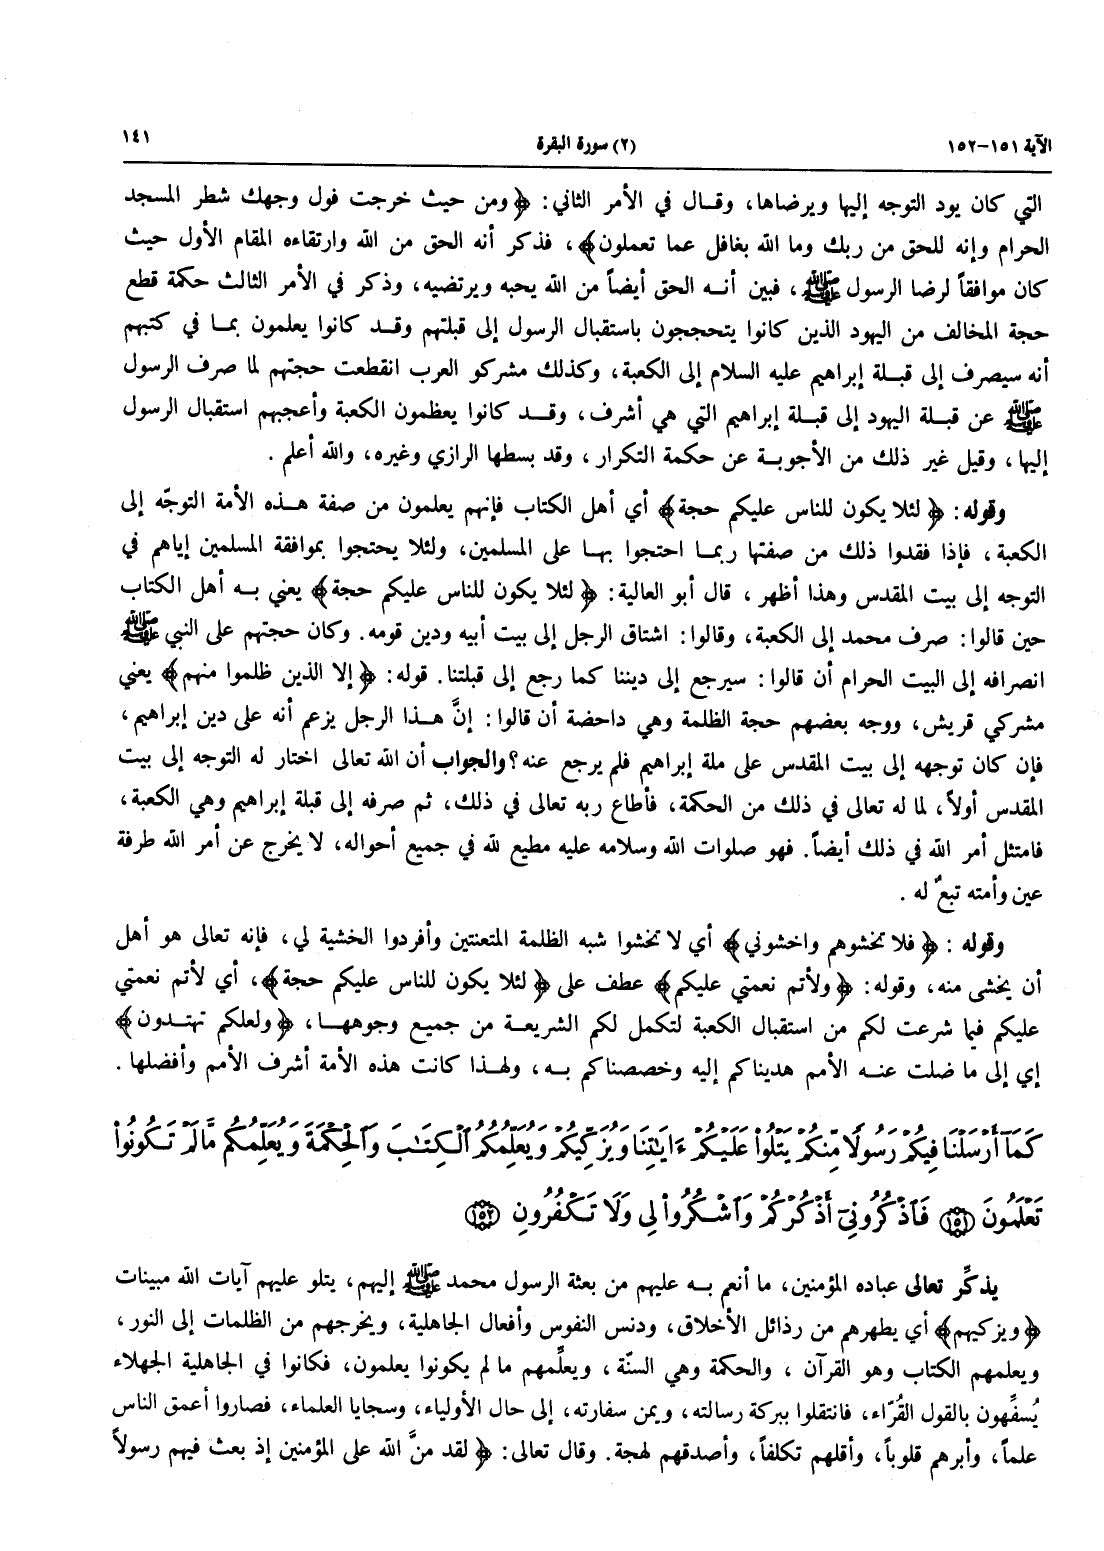 الآية ١٥١-١٥٢ (٢) سورة البقرة ١٤١
التي كان يود التوجه إليها ويرضاها، وقال في الأمر الثاني: ﴿ومن حيث خرجت فول وجهك شطر المسجد
الحرام وإنه للحق من ربك وما الله بغافل عما تعملون﴾، فذكر أنه الحق من الله وارتقاءه المقام الأول حيث
كان موافقاً لرضا الرسول ﷺ، فبين أنه الحق أيضاً من الله يحبه ويرتضيه، وذكر في الأمر الثالث حكمة قطع
حجة المخالف من اليهود الذين كانوا يتحججون باستقبال الرسول إلى قبلتهم وقد كانوا يعلمون بما في كتبهم
أنه سيصرف إلى قبلة إبراهيم عليه السلام إلى الكعبة، وكذلك مشركو العرب انقطعت حجتهم لما صرف الرسول
ﷺ عن قبلة اليهود إلى قبلة إبراهيم التي هي أشرف، وقد كانوا يعظمون الكعبة وأعجبهم استقبال الرسول
إليها، وقيل غير ذلك من الأجوبة عن حكمة التكرار، وقد بسطها الرازي وغيره، والله أعلم.
وقوله: ﴿لئلا يكون للناس عليكم حجة﴾ أي أهل الكتاب فإنهم يعلمون من صفة هذه الأمة التوجّه إلى
الكعبة، فإذا فقدوا ذلك من صفتها ربما احتجوا بها على المسلمين، ولئلا يحتجوا بموافقة المسلمين إياهم في
التوجه إلى بيت المقدس وهذا أظهر، قال أبو العالية: ﴿لئلا يكون للناس عليكم حجة﴾ يعني به أهل الكتاب
حين قالوا: صرف محمد إلى الكعبة، وقالوا: اشتاق الرجل إلى بيت أبيه ودين قومه. وكان حجتهم على النبي ﷺ
انصرافه إلى البيت الحرام أن قالوا: سيرجع إلى ديننا كما رجع إلى قبلتنا. قوله: ﴿إلا الذين ظلموا منهم﴾ يعني
مشركي قريش، ووجه بعضهم حجة الظلمة وهي داحضة أن قالوا: إنَّ هذا الرجل يزعم أنه على دين إبراهيم،
فإن كان توجهه إلى بيت المقدس على ملة إبراهيم فلم يرجع عنه؟ والجواب أن الله تعالى اختار له التوجه إلى بيت
المقدس أولاً، لما له تعالى في ذلك من الحكمة، فأطاع ربه تعالى في ذلك، ثم صرفه إلى قبلة إبراهيم وهي الكعبة،
فامتثل أمر الله في ذلك أيضاً. فهو صلوات الله وسلامه عليه مطيع لله في جميع أحواله، لا يخرج عن أمر الله طرفة
عين وأمته تبعٌ له.
وقوله: ﴿فلا تخشوهم واخشوني﴾ أي لا تخشوا شبه الظلمة المتعنتين وأفردوا الخشية لي، فإنه تعالى هو أهل
أن يخشى منه، وقوله: ﴿ولأتم نعمتي عليكم﴾ عطف على ﴿لئلا يكون للناس عليكم حجة﴾، أي لأتم نعمتي
عليكم فيما شرعت لكم من استقبال الكعبة لتكمل لكم الشريعة من جميع وجوهها، ﴿ولعلكم تهتدون﴾
إي إلى ما ضلت عنه الأمم هديناكم إليه وخصصناكم به، ولهذا كانت هذه الأمة أشرف الأمم وأفضلها.
كَمَآ أَرْسَلْنَا فِيكُمْ رَسُولًا مِّنكُمْ يَتْلُوا۟ عَلَيْكُمْ ءَايَـٰتِنَا وَيُزَكِّيكُمْ وَيُعَلِّمُكُمُ ٱلْكِتَـٰبَ وَٱلْحِكْمَةَ وَيُعَلِّمُكُم مَّا لَمْ تَكُونُوا۟
تَعْلَمُونَ ١٥١ فَٱذْكُرُونِىٓ أَذْكُرْكُمْ وَٱشْكُرُوا۟ لِى وَلَا تَكْفُرُونِ ١٥٢
يذكِّر تعالى عباده المؤمنين، ما أنعم به عليهم من بعثة الرسول محمد ﷺ إليهم، يتلو عليهم آيات الله مبينات
﴿ويزكيهم﴾ أي يطهرهم من رذائل الأخلاق، ودنس النفوس وأفعال الجاهلية، ويخرجهم من الظلمات إلى النور،
ويعلمهم الكتاب وهو القرآن، والحكمة وهي السنّة، ويعلِّمهم ما لم يكونوا يعلمون، فكانوا في الجاهلية الجهلاء
يُسفِّهون بالقول القُرّاء، فانتقلوا ببركة رسالته، ويمن سفارته، إلى حال الأولياء، وسجايا العلماء، فصاروا أعمق الناس
علماً، وأبرهم قلوباً، وأقلهم تكلفاً، وأصدقهم لهجة. وقال تعالى: ﴿لقد منَّ الله على المؤمنين إذ بعث فيهم رسولاً